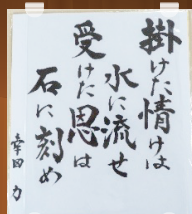 掛けた情けは
水に流せ
受けた恩は
石に刻め
幸田 力